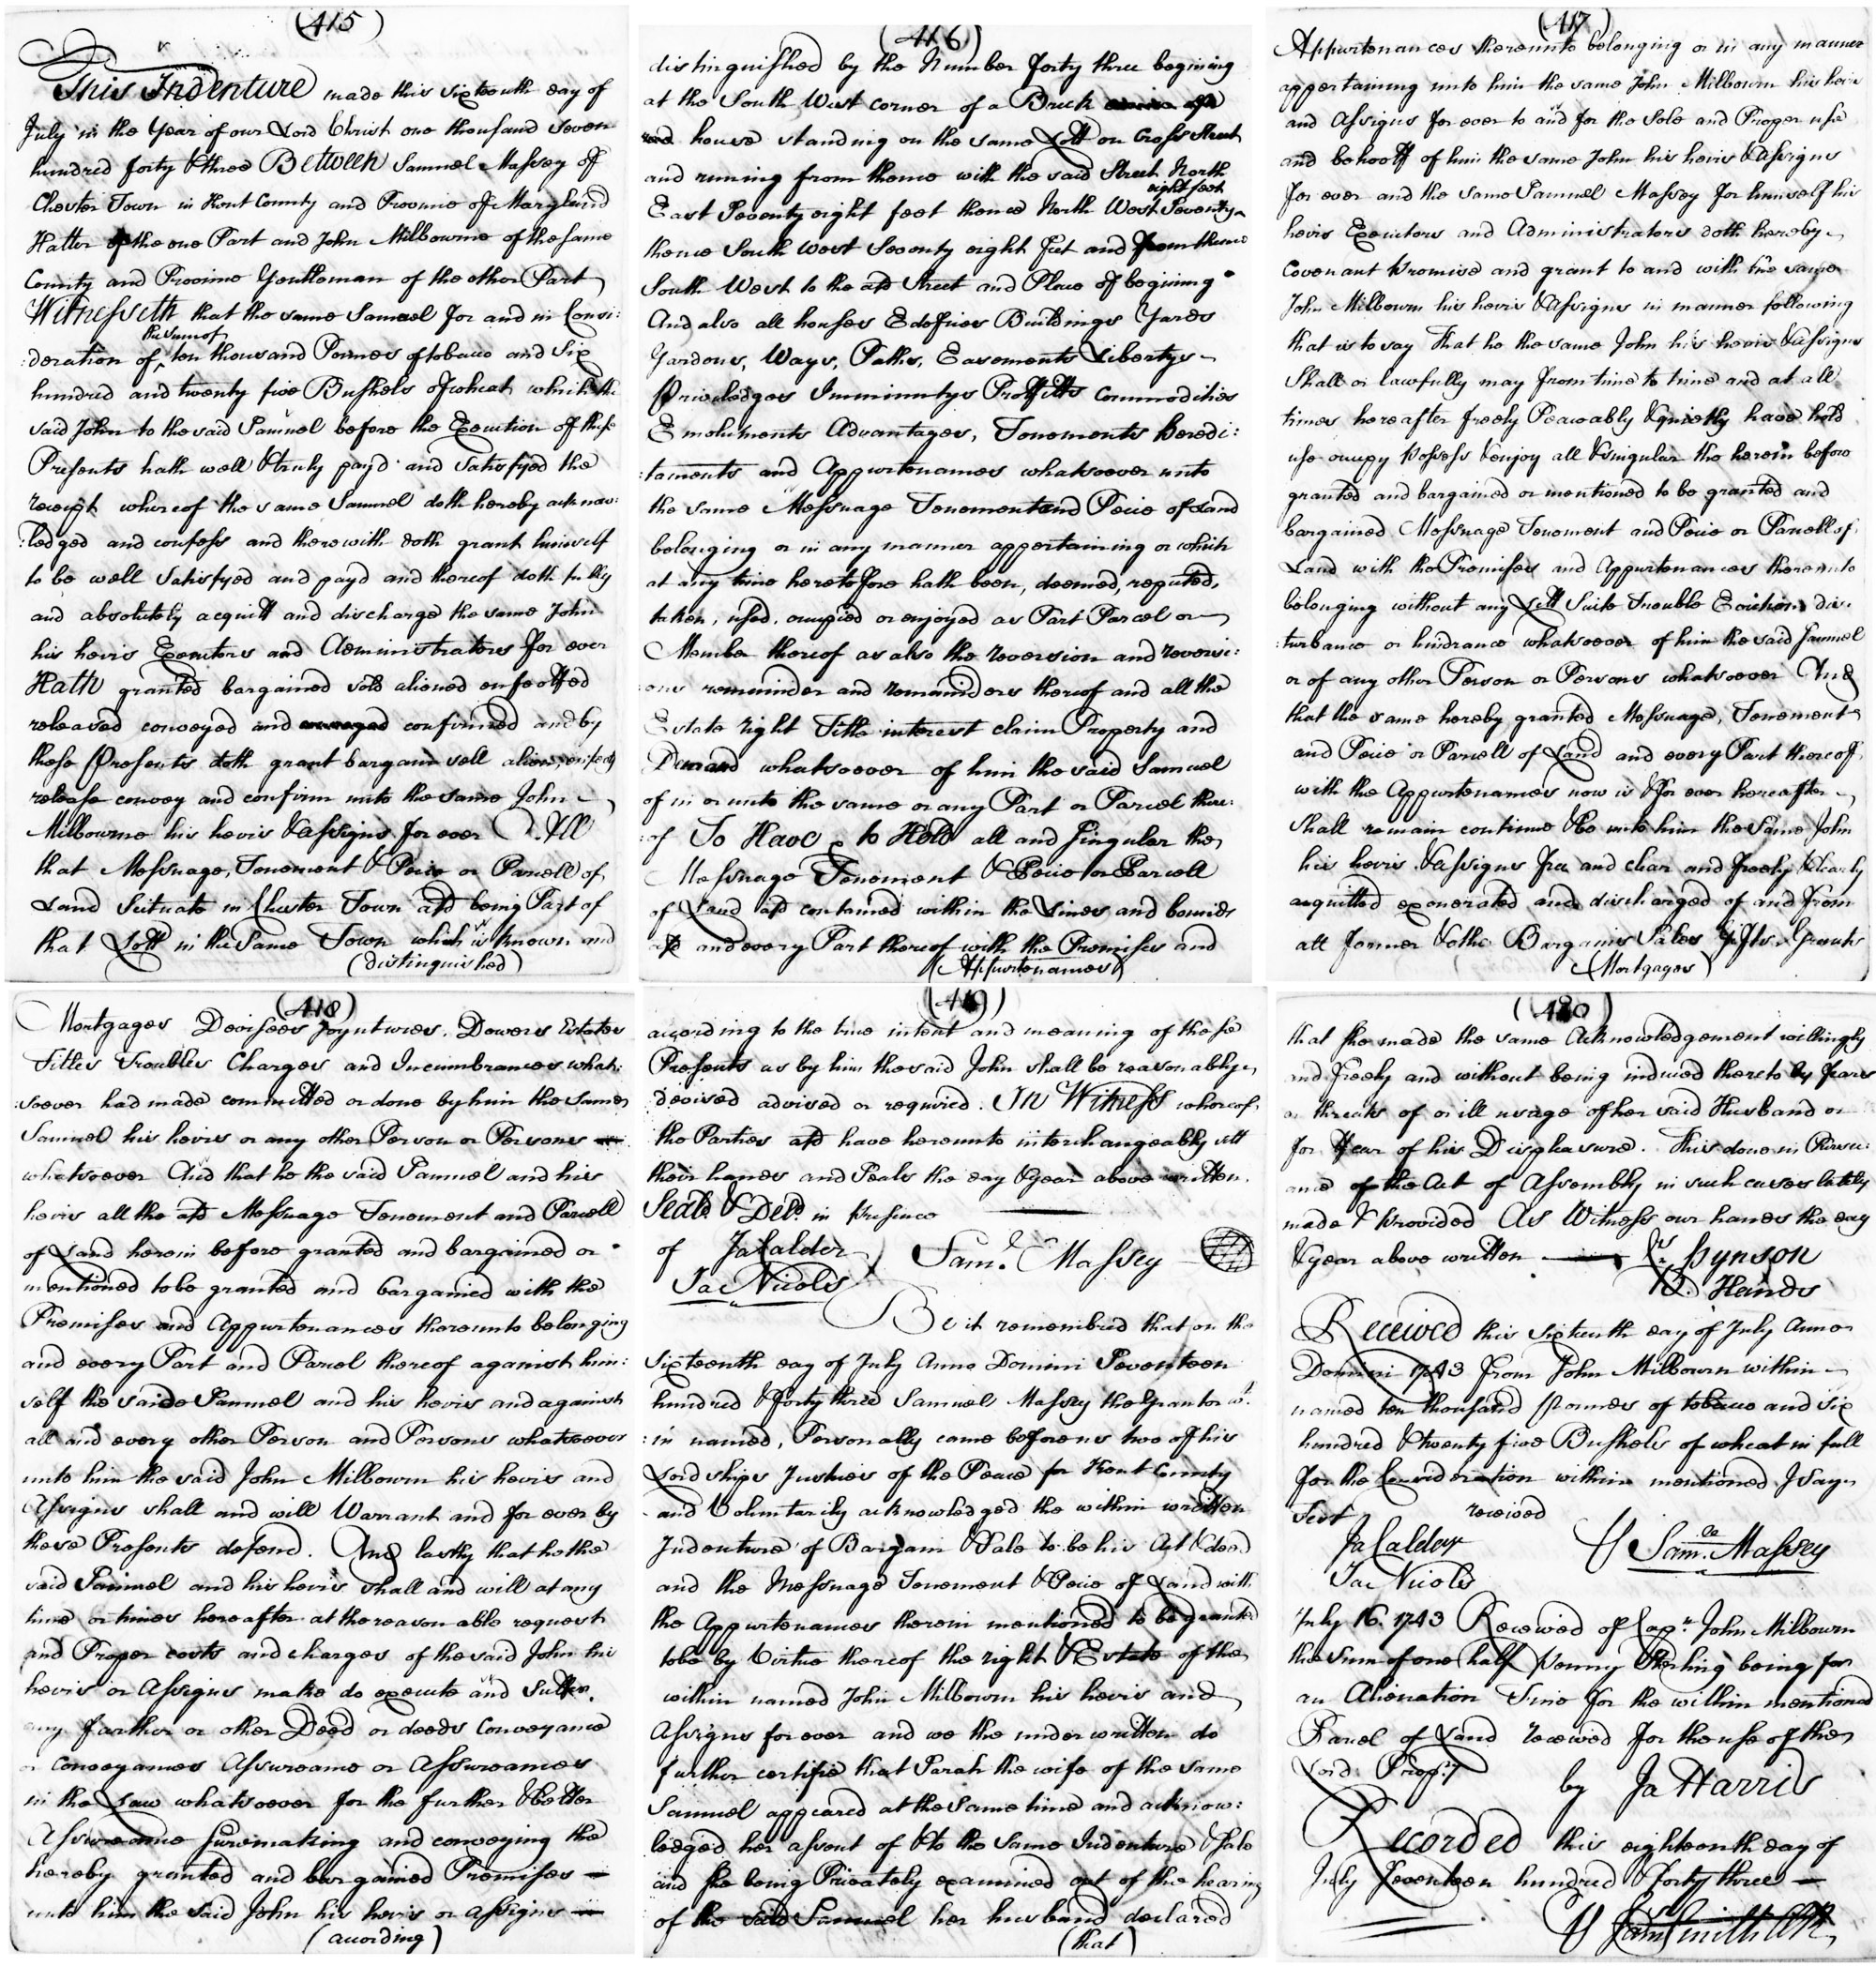 (415)
This Indenture made this sixteenth day of
July in the Year of our Lord Christ one thousand seven
hundred forty & three Between Samuel Massey of
Chester Town in Kent County and Province of Maryland
Hatter of the one Part and John Milbourne of the same
County and Province Gentleman of the other Part
Witnesseth that the same Samuel for and in Consi:
the sum of
:deration of ten thousand Pounds of tobacco and six
hundred and twenty five Bushels of wheat which the
said John to the said Samuel before the Execution of these
Presents hath well & truly payd and Satisfyed the
receipt whereof the same Samuel doth hereby acknow:
:ledged and confess and therewith doth grant himself
to be well Satisfyed and payd and thereof doth fully
and absolutely acquitt and discharge the same John
his heirs Executors and Administrators for ever
Hath granted bargained sold aliened enfeoffed
released conveyed and confirmed and by
these Presents doth grant bargain sell alien, enfeoff
release convey and confirm unto the same John
Milbourne his heirs & assigns for ever All
that Messuage, Tenement & Peice or Parcell of
Land Scituate in Chester Town afd being Part of
that Lott in the Same Town which is known and
(distinguished)
(416)
distinguished by the Number forty three begining
at the South West corner of a Brick
house standing on the same Lott on Cross Street
and runing from thence with the said Street North
eight feet
East Seventy eight feet thence North West Seventy
thence South West Seventy eight feet and from thence
South West to the afd Street and Place of begining
And also all houses Edefices Buildings Yards
Gardens, Ways, Paths, Easements Libertys
Priviledges Imminitys Proffitts Commodities
Emoluments Advantages, Tenements heredi:
:taments and Appurtenances whatsoever unto
the same Messuage Tenement and Peice of Land
belonging or in any manner appertaining or which
at any time heretofore hath been, deemed, reputed,
taken, used, occupied or enjoyed as Part Parcel or
Member thereof as also the reversion and reversi:
:ons remainder and remainders thereof and all the
Estate right Title interest claim Property and
Demand whatsoever of him the said Samuel
of in or unto the same or any Part or Parcel there:
:of To Have & to Hold all and singular the
Messuage Tenement & Peice or Parcell
of Land afd contained within the Lines and bounds
afd and every Part thereof with the Premises and
(Appurtenances)
(417)
Appurtenances thereunto belonging or in any manner
appertaining unto him the same John Milbourn his heirs
and Assigns for ever to and for the Sole and Proper use
and behooff of him the same John his heirs & Assigns
for ever and the same Samuel Massey for himself his
heirs Executors and Administrators doth hereby
Covenant Promise and grant to and with the same
John Milbourn his heirs & Assigns in manner following
that is to say That he the same John his heirs & assigns
Shall or lawfully may from time to time and at all
times hereafter freely Peaceably & quietly have hold
use occupy Possess & enjoy all & singular the herein before
granted and bargained or mentioned to be granted and
bargained Messuage Tenement and Peice or Parcell of
Land with the Premises and Appurtenances thereunto
belonging without any Lett Suite Trouble Eviction dis:
:turbance or hindrance whatsoever of him the said Samuel
or of any other Person or Persons whatsoever And
that the same hereby granted Messuage, Tenement
and Peice or Parcell of Land and every Part thereof
with the Appurtenances now is & for ever hereafter
Shall remain continue & be unto him the Same John
his heirs & assigns free and clear and freely & clearly
acquitted exonerated and discharged of and from
all former & other Bargains Sales Gifts Grants
(Mortgages)
(418)
Mortgages Devisees Joyntures, Dowers Estates
Titles Troubles Charges and Incumbrances what:
:soever had made committed or done by him the same
Samuel his heirs or any other Person or Persons
whatsoever And that he the said Samuel and his
heirs all the afd Messuage Tenement and Parcell
of Land herein before granted and bargained or
mentioned to be granted and bargained with the
Premises and Appurtenances thereunto belonging
and every Part and Parcel thereof against him:
self the said Samuel and his heirs and against
all and every other Person and Persons whatsoever
unto him the said John Milbourn his heirs and
Assigns shall and will Warrant and for ever by
these Presents defend. And lastly that he the
said Samuel and his heirs shall and will at any
time or times hereafter at the reasonable request
and Proper costs and charges of the said John his
heirs or Assigns make do execute and Suffer
any farther or other Deed or deeds Conveyance
or Conveyances Assureance or Assureances
in the Law whatsoever for the further & better
Assureance suremaking and conveying the
hereby granted and bargained Premises
unto him the said John his heirs or assigns
(according)
(419)
according to the true intent and meaning of these
Presents as by him the said John shall be reasonably
devised advised or required. In Witness whereof
the Parties afd have hereunto interchangeably sett
their hands and Seals the day & year above written.
Seald & Deld in presence
of Ja Calder Saml Massey
Jac Nicols
Be it remembred that on the
sixteenth day of July Anno Domini Seventeen
hundred & forty three Samuel Massey the Grantor wth
:in named, Personally came before us two of his
Lordships Justices of the Peace for Kent County
and Voluntarily acknowledged the within written
Indenture of Bargain & Sale to be his Act & deed
and the Messuage Tenement & Peice of Land with
the Appurtenances therein mentioned to be granted
to be by Virtue thereof the right & Estate of the
within named John Milbourn his heirs and
Assigns for ever and we the underwritten do
further certifie that Sarah the wife of the same
Samuel appeared at the Same time and acknow:
ledged her assent of & to the Same Indenture & Sale
and she being Privately examined out of the hearing
of the said Samuel her husband declared
(that)
(420)
that she made the same Acknowledgement willingly
and freely and without being induced thereto by fears
or threats of or ill usage of her said Husband or
for fear of his Displeasure. This done in Pursu:
ance of the Act of Assembly in such cases lately
made & provided As Witness our hands the day
& year above written Hynson
B. Hands
Received this sixteenth day of July Anno
Domini 1743 from John Milbourn within
named ten thousand Pounds of tobacco and six
hundred & twenty five Bushels of wheat in full
for the Consideration within mentioned I say
Test received
Ja Calder Saml Massey
Jac Nicols
July 16. 1743 Received of Capn John Milbourn
the Sum of one half Penny Sterling being for
an Alienation Fine for the within mentioned
Parcel of Land received for the use of the
Lord Propy
by Ja Harris
Recorded this eighteenth day of
July Seventeen hundred & forty three
Jams Smith Clk